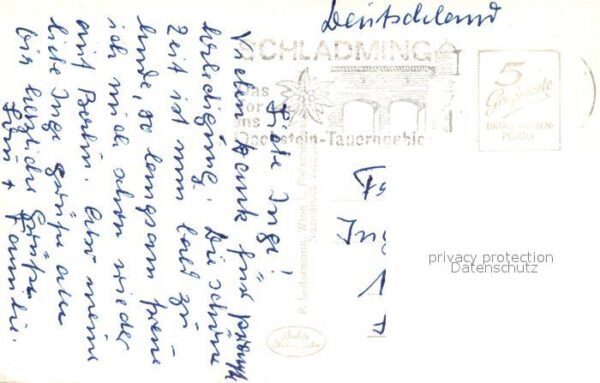 Deutschland
SCHLADMING
Das
Tor
ins
Dachstein-Tauerngebiet
5
Groschen
DRUCKSACHEN-
PORTO
Liebe Inge!
Vielen Dank für prompte
Erledigung. Die schöne
Zeit ist nun bald zu
Ende, so langsam freue
ich mich schon wieder
auf Berlin. Aber meine
liebe Inge Grüße an
Dir herzliche Grüße
Familie.
P. Ledermann, Wien I.
Echte
Ing
privacy protection
Datenschutz